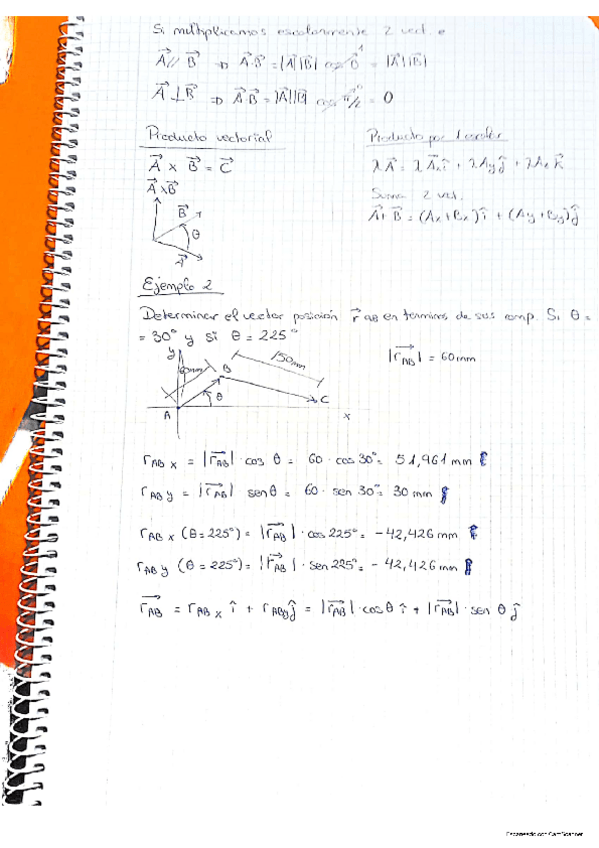 Si multiplicamos escalarmente 2 vect. e
A⃗ // B⃗ ⇒ A⃗·B⃗ = |A⃗||B⃗| cos 0 = |A⃗||B⃗|
A⃗ ⊥ B⃗ ⇒ A⃗·B⃗ = |A⃗||B⃗| cos π/2 = 0
Producto vectorial
A⃗ x B⃗ = C⃗
A⃗ x B⃗
B⃗
θ
A⃗
Producto por 1 escalar
λA⃗ = λA⃗x î + λAy ĵ + λAz k̂
Suma 2 vect.
A⃗ + B⃗ = (Ax + Bx) î + (Ay + By) ĵ
Ejemplo 2
Determinar el vector posición r⃗ AB en terminos de sus comp. Si θ =
= 30° y si θ = 225°
|r⃗AB| = 60mm
y
60mm
B
150mm
θ
C
A
x
rAB x = |r⃗AB| · cos θ = 60 · cos 30° = 51,961 mm
rAB y = |r⃗AB| senθ = 60 · sen 30° = 30 mm
rAB x (θ = 225°) = |r⃗AB| · cos 225° = -42,426 mm
rAB y (θ = 225°) = |r⃗AB| · sen 225° = -42,426 mm
r⃗AB = rAB x î + rABy ĵ = |r⃗AB| · cosθ î + |r⃗AB| · sen θ ĵ
Escaneado con CamScanner